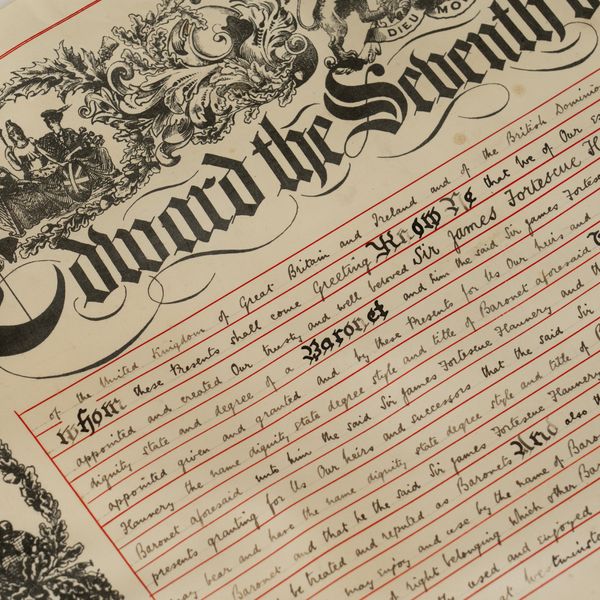 DIEU
Edward the Seventh
of the United Kingdom of Great Britain and Ireland and of the British Dominions
whom these Presents shall come Greeting Know Ye that We of Our
appointed and created Our trusty and well beloved Sir James Fortescue
dignity state and degree of a Baronet and him the said Sir James
appointed given and granted and by these Presents for Us Our heirs and
Flannery the name dignity state degree style and title of Baronet aforesaid
Baronet aforesaid unto him the said Sir James Fortescue Flannery and the
presents granting for Us Our heirs and successors that the said Sir
may bear and have the name dignity state degree style and title of
Baronet and that he the said Sir James Fortescue Flannery
be treated and reputed as Baronets And also
may enjoy and use by the name of
right belonging which other
used and enjoyed
at Westminster